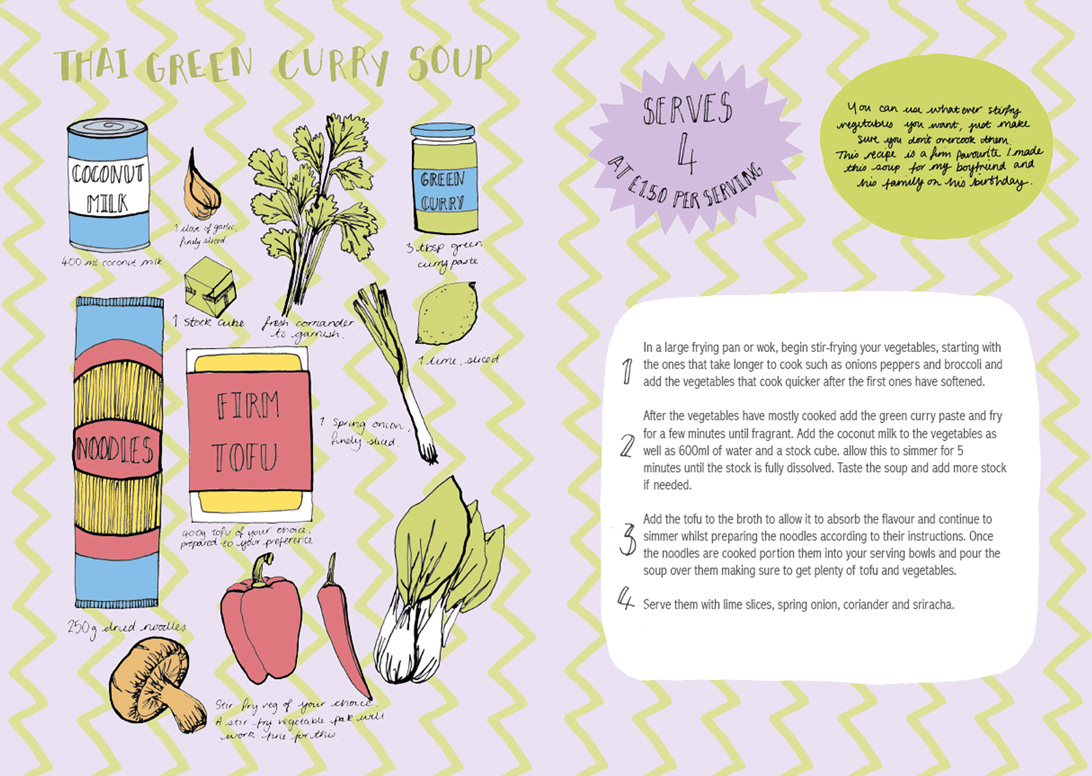 THAI GREEN CURRY SOUP
COCONUT
MILK
400 ml coconut milk
1 clove of garlic,
finely sliced.
GREEN
CURRY
3 tbsp green
curry paste.
1 stock cube
fresh corriander
to garnish.
1 lime, sliced
NOODLES
250g dried noodles
FIRM
TOFU
400g tofu of your choice,
prepared to your preference
1 spring onion,
finely sliced.
Stir fry veg of your choice.
A stir fry vegetable pak will
work fine for this.
SERVES
4
AT £1.50 PER SERVING
You can use what ever stirfry
vegetables you want, just make
sure you don't overcook them.
This recipe is a firm favourite I made
this soup for my boyfriend and
his family on his birthday.
1 In a large frying pan or wok, begin stir-frying your vegetables, starting with
the ones that take longer to cook such as onions peppers and broccoli and
add the vegetables that cook quicker after the first ones have softened.
2 After the vegetables have mostly cooked add the green curry paste and fry
for a few minutes until fragrant. Add the coconut milk to the vegetables as
well as 600ml of water and a stock cube. allow this to simmer for 5
minutes until the stock is fully dissolved. Taste the soup and add more stock
if needed.
3 Add the tofu to the broth to allow it to absorb the flavour and continue to
simmer whilst preparing the noodles according to their instructions. Once
the noodles are cooked portion them into your serving bowls and pour the
soup over them making sure to get plenty of tofu and vegetables.
4 Serve them with lime slices, spring onion, coriander and sriracha.